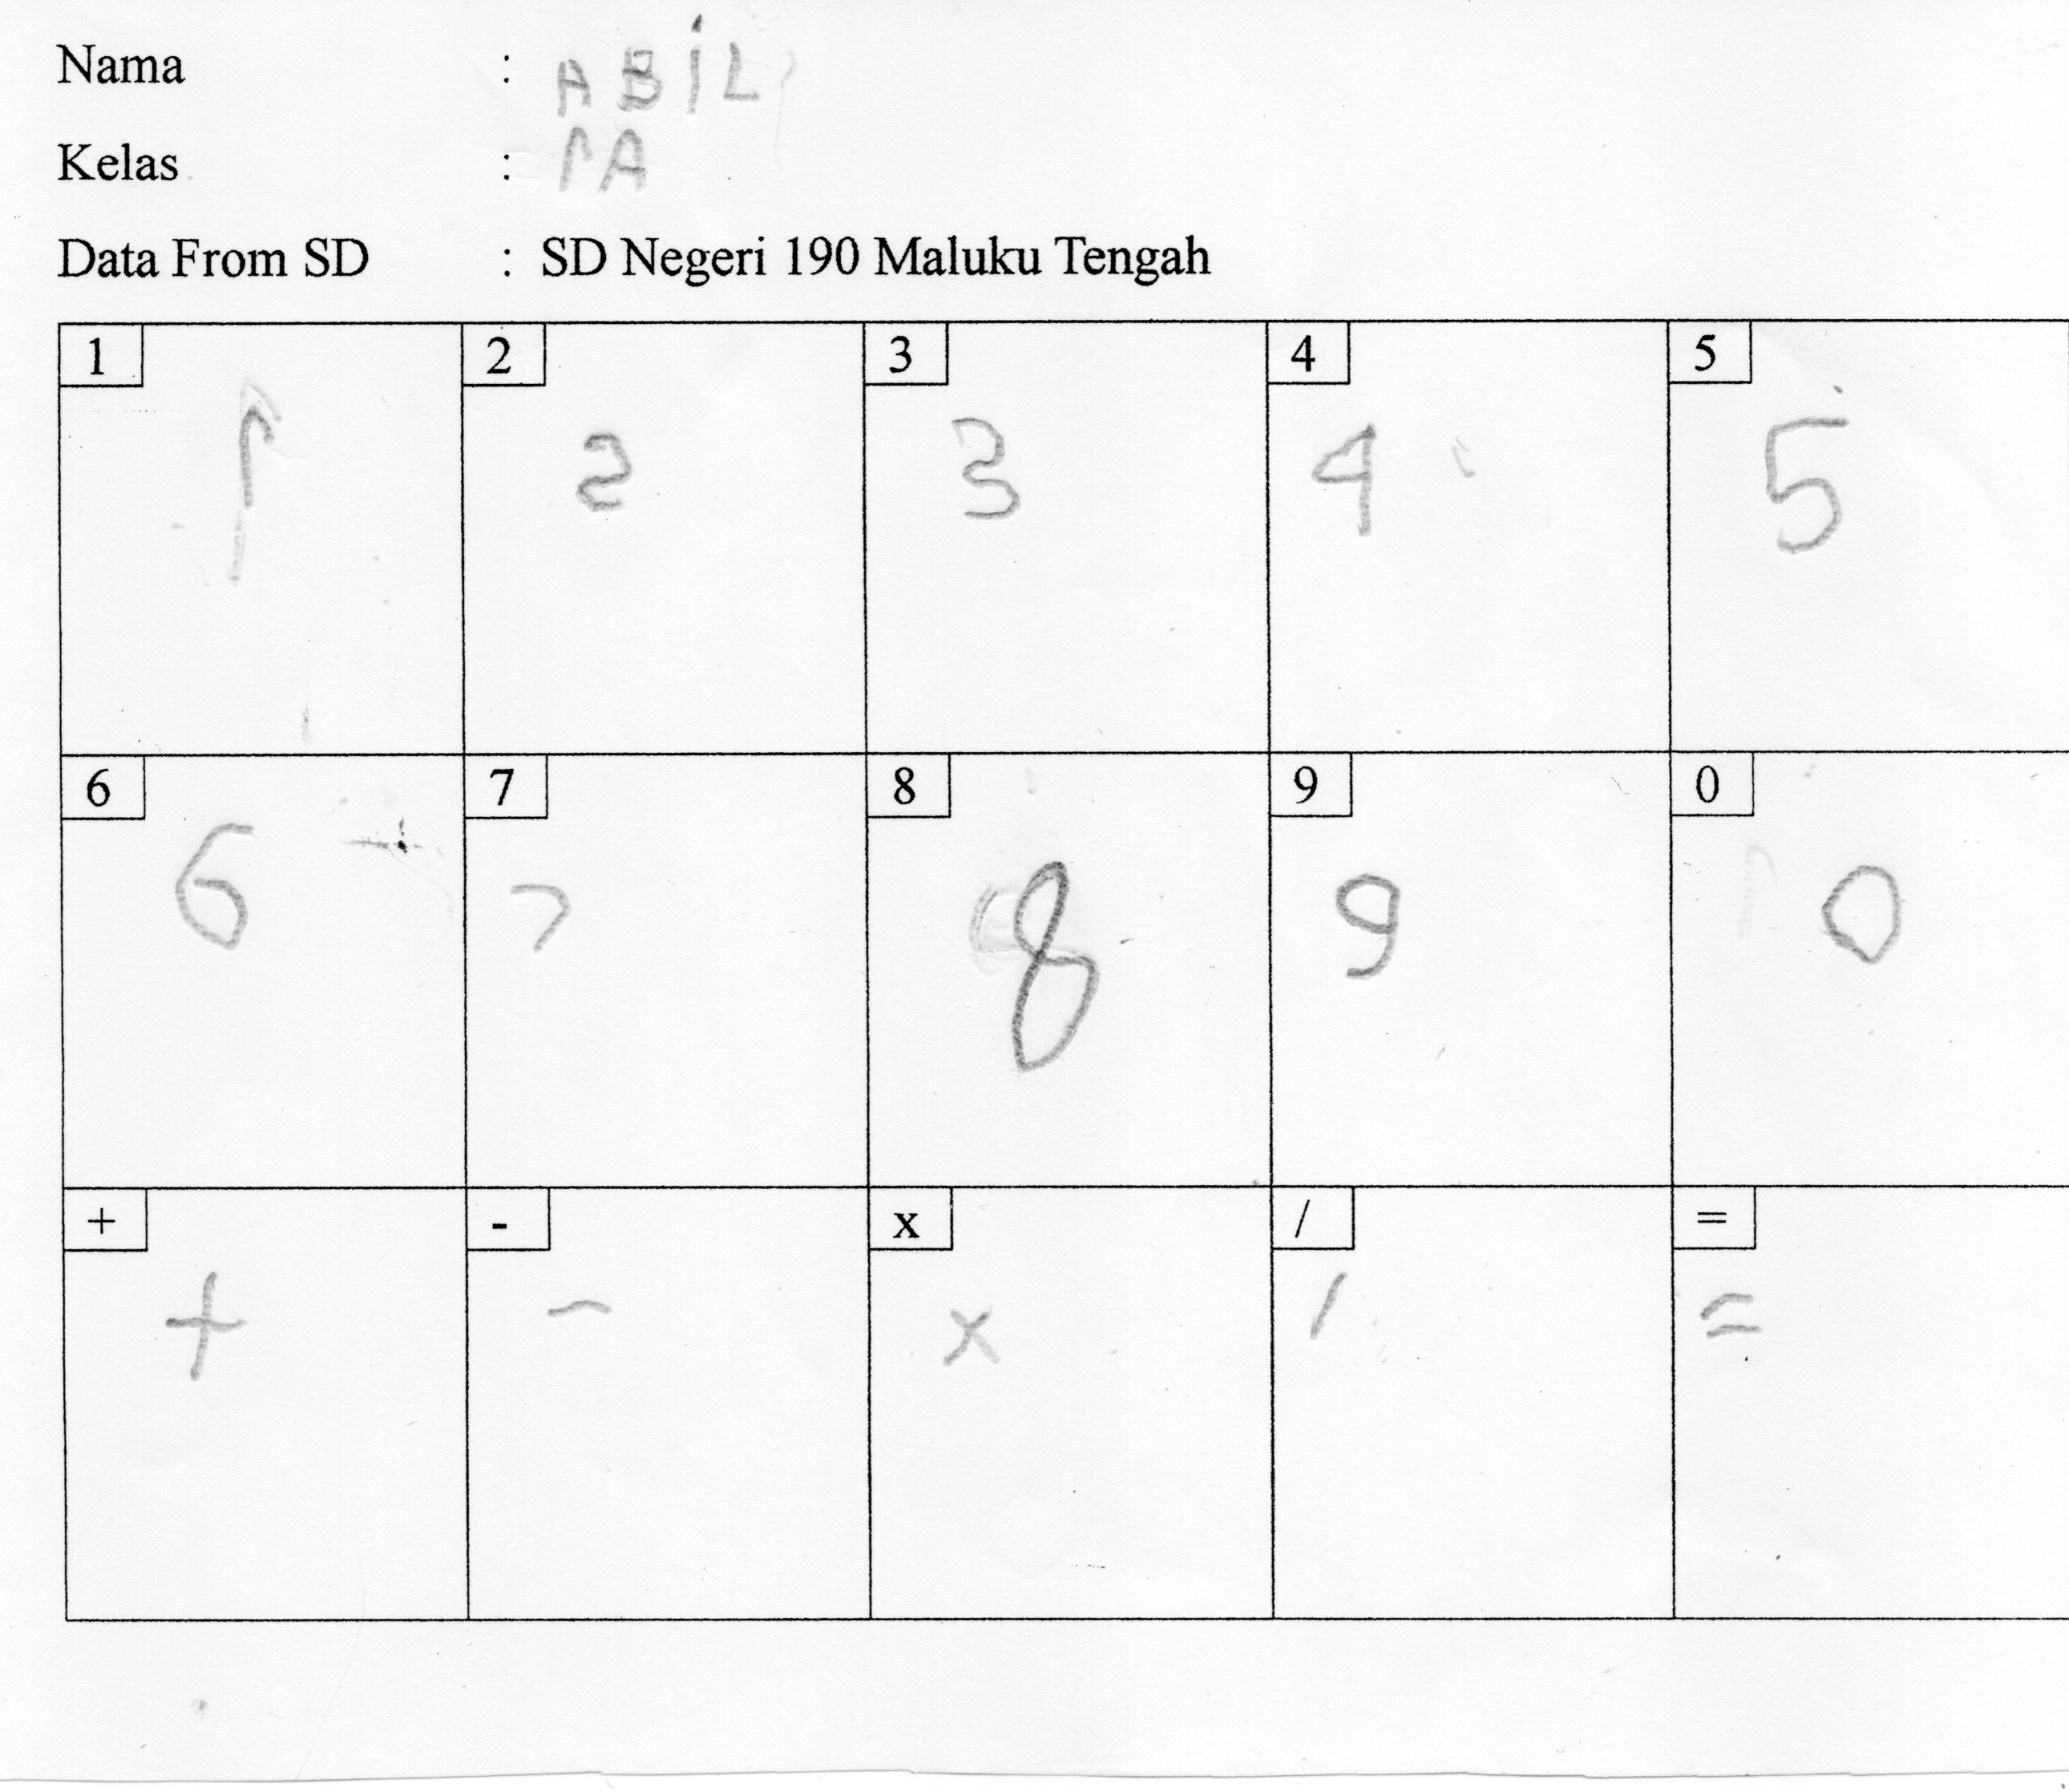 Nama : ABiL
Kelas : 1A
Data From SD : SD Negeri 190 Maluku Tengah
1 2 3 4 5
1 2 3 4 5
6 7 8 9 0
6 7 8 9 0
+ - x / =
+ - x / =